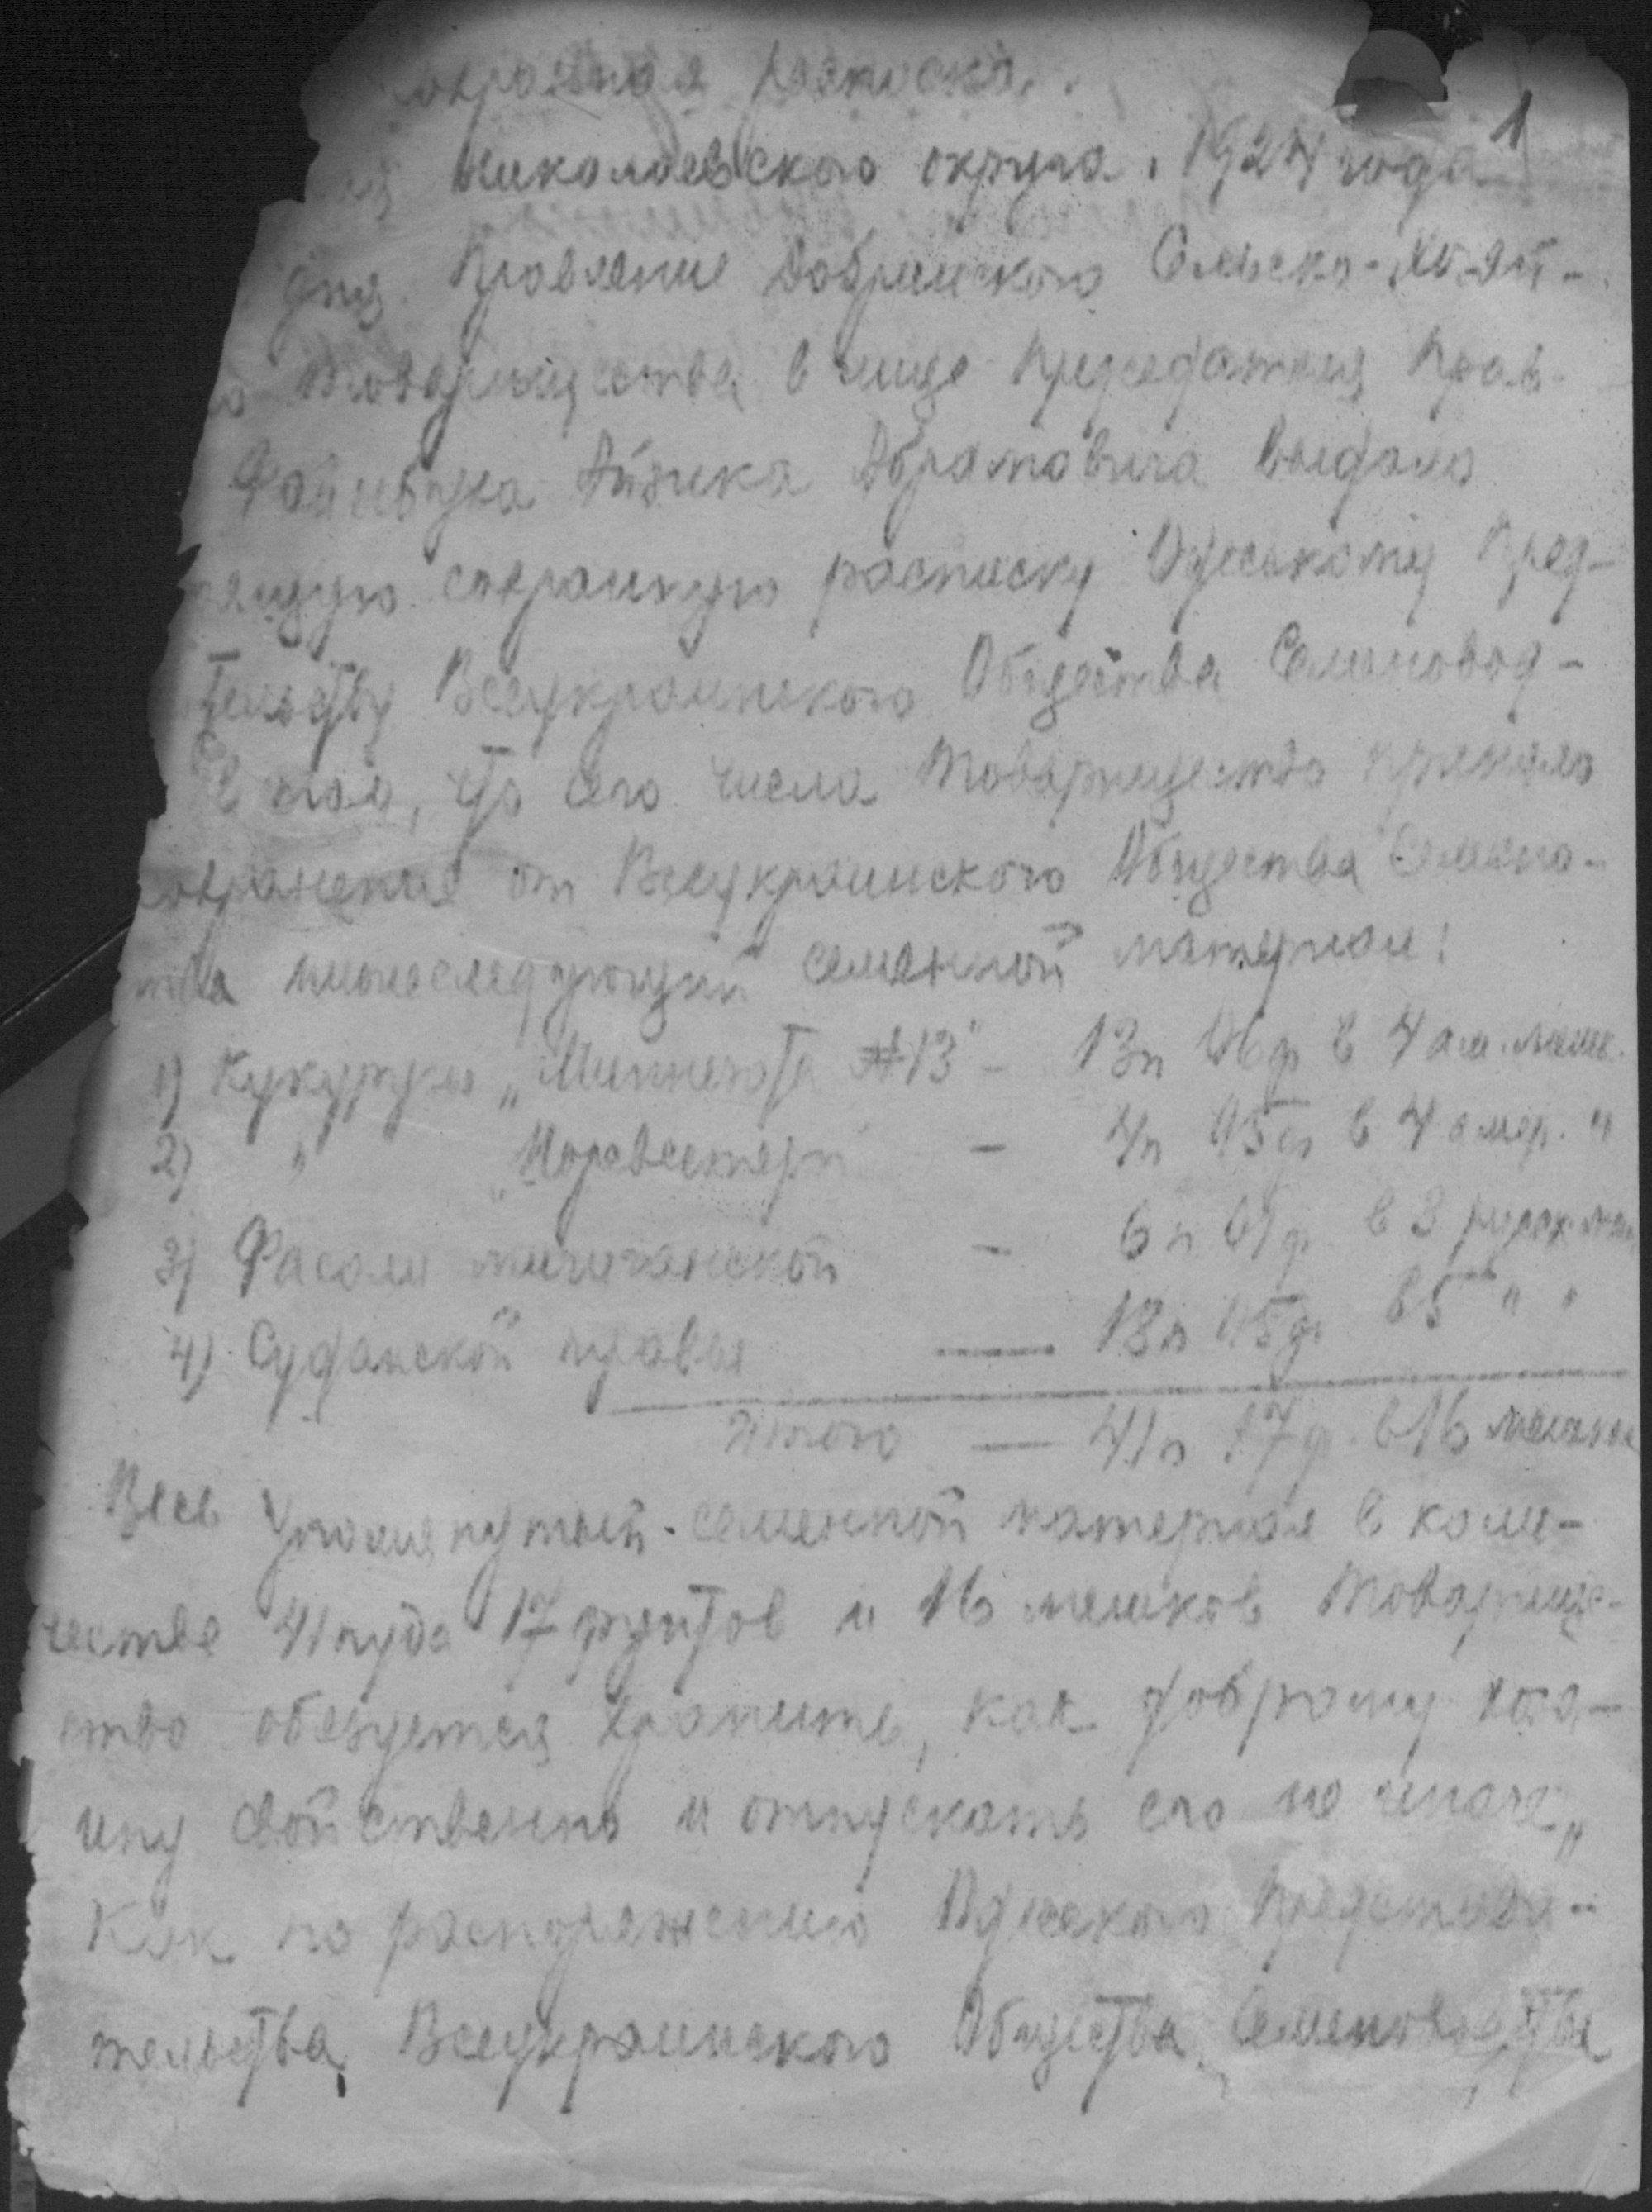 охранная расписка.
1
Николаевского округа. 1924 года
дня Правление Добринского Сельско-Хозяй-
о Товарищества в лице Председателя Прав-
Айзика Абрамовича выдало
ящую сохранную расписку Одесскому Пред-
тельству Всеукраинского Общества Семеновод-
в том, что сего числа Товарищество приняло
охранение от Всеукраинского Общества Семено-
тва нижеследующий семенной материал:
1) Кукурузы „Миннезота #13" – 13п 06ф в 4 ам. меш.
2) " „Норвестерн – 4п 05ф в 4 амер. "
3) Фасоли мичиганской – 6п 01ф в 3 русск. меш
4) Суданской травы — 18п 05ф в 5 " "
Итого — 41п 17ф. в 16 мешках
Весь упомянутый семенной материал в коли-
честве 41 пуда 17 фунтов и 16 мешков Товарище-
ство обязуется хранить, как доброму хозя-
ину свойственно и отпускать его не иначе,
как по распоряжению Одесского Представи-
тельства Всеукраинского Общества Семеноводства